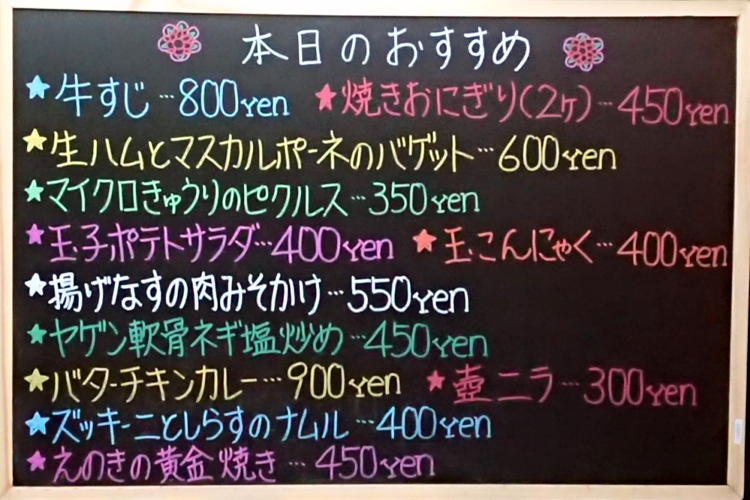 本日のおすすめ
★牛すじ…800yen ★焼きおにぎり(2ヶ)…450yen
★生ハムとマスカルポーネのバゲット…600yen
★マイクロきゅうりのピクルス…350yen
★玉子ポテトサラダ…400yen ★玉こんにゃく…400yen
★揚げなすの肉みそかけ…550yen
★ヤゲン軟骨ネギ塩炒め…450yen
★バターチキンカレー…900yen ★壺ニラ…300yen
★ズッキーニとしらすのナムル…400yen
★えのきの黄金焼き…450yen